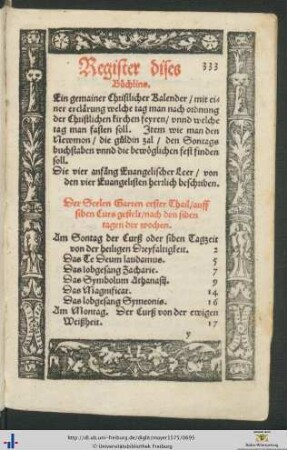 Register dises
333
Büchlins.
Ein gemainer Christlicher Kalender / mit ei
ner erclärung welche tag man nach ordnung
der Christlichen kirchen feyren / vnnd welche
tag man fasten soll. Item wie man den
Newmon / die guldin zal / den Sontags
buchstaben vnnd die bewöglichen fest finden
soll.
Die vier anfäng Euangelischer Leer / von
den vier Euangelisten herrlich beschriben.
Der Seelen Garten erster Thail / auff
siben Curs gestelt / nach den siben
tagen der wochen.
Am Sontag der Curß oder siben Tagzeit
von der heiligen Dreyfaltigkeit. 2
Das Te Deum laudamus. 5
Das lobgesang Zacharie. 7
Das Symbolum Athanasij. 9
Das Magnificat. 14
Das lobgesang Symeonis. 16
Am Montag. Der Curß von der ewigen
Weißheit. 17
y
http://dl.ub.uni-freiburg.de/diglit/mayer1575/0690
© Universitätsbibliothek Freiburg